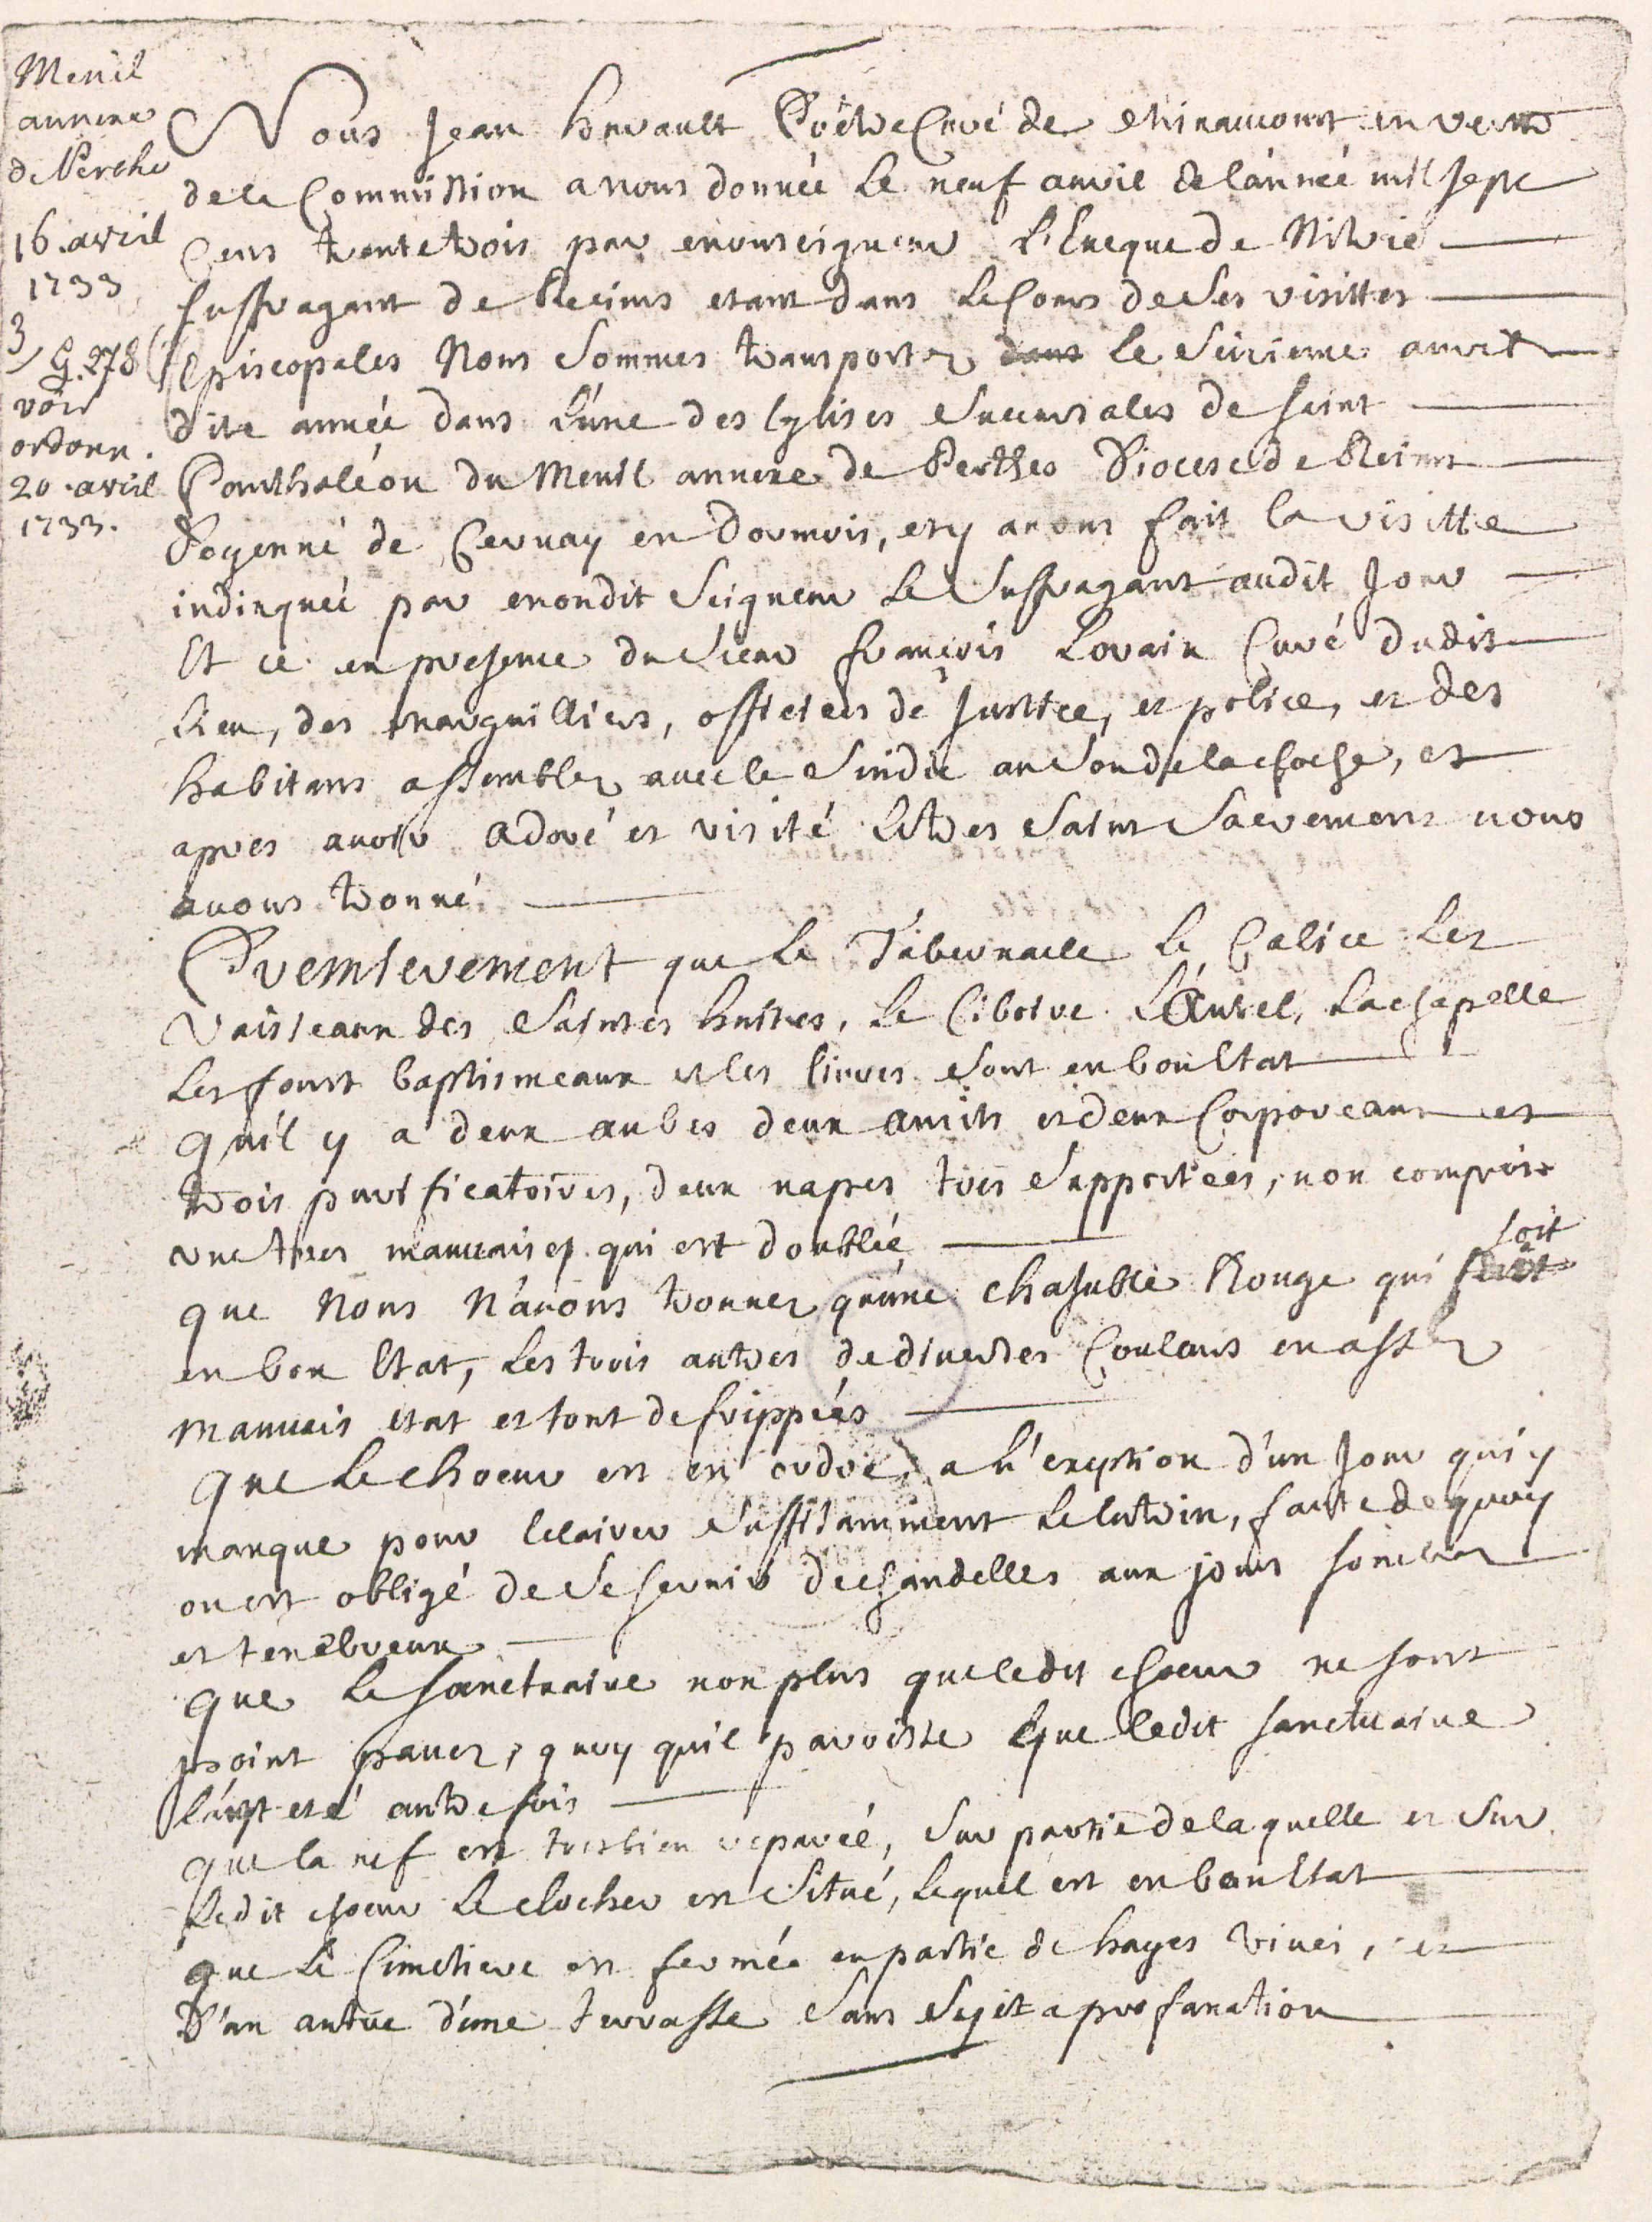 Menil
annexe
de Perthe
16. avril
1733
3
G. 278
voir
ordonn.
20. avril
1733.
Nous Jean heruault Prêtre Curé de Minaucourt en vertu
de la Commission a nous donnée Le neuf auril de l'année mil sept
Cens trente trois par monseigneur L'Eueque de Nitrie
suffragant de Reims etant dans Le Cours de Ses visittes
Episcopales Nous Sommes transportez dans Le Seizieme auril
dite année dans L'une des Eglises Succursales de saint
Panthaléon du Menil annexe de Perthes Diocese de Reims
Doyenné de Cernay en Dormois, et y auons fait la visitte
indiquéé par mondit Seigneur Le Suffragant audit Jour
Et ce en presence du Sieur françois Lorain Curé dudit
Lieu, des marguilliers, officiers de Justice, et police, et des
habitans assemblez auec le Sindic au Son de la cloche, et
apres auoir adoré et visité Le tres Saint Sacrement nous
auons trouué.
Premierement que Le Tabernacle Le Calice Les
Vaisseaux des Saintes huiles, Le Ciboire L'Autel, La chapelle
Les fonts baptismeaux et les liures Sont en bon Etat
qu'il y a deux aubes deux amits et deux Corporeaux et
trois purificatoires, deux napes tres Supportées, non compris
une tres mauuaise qui est doublée
que Nous N'auons trouuez qu'une chasuble Rouge qui soit
en bon Etat, Les trois autres de diuerses Couleurs en assez
mauuais etat et tout defrippées
que Le choeur est en ordre, a L'exeption d'un Jour qui y
manque pour Eclairer Suffisamment Le lutrin, faute de quoy
on est obligé de Se seruir de chandelles aux jours sombres
et tenebreux
que Le sanctuaire non plus que ledit choeur ne sont
point pauez, quoy qu'il paroisse que ledit sanctuaire
l'ayt eté autrefois
que la nef est tres bien reparéé, Sur partie de laquelle et Sur
Ledit choeur Le clocher est Situé, Lequel est en bon Etat
que Le Cimetiere est fermée en partie de hayes viues, et
D'un autre d'une terrasse Sans Sujet a profanation